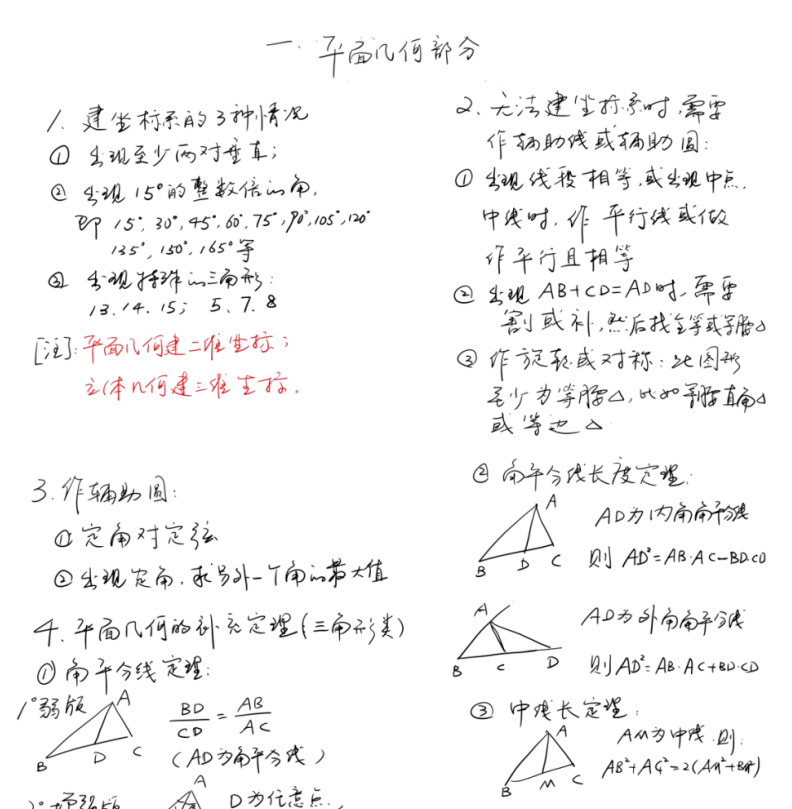 一、平面几何部分
1、建坐标系的3种情况
① 出现至少两对垂直;
② 出现15°的整数倍的角,
即 15°, 30°, 45°, 60°, 75°, 90°, 105°, 120°
135°, 150°, 165°等
③ 出现特殊的三角形:
13. 14. 15; 5. 7. 8
[注]: 平面几何建二维坐标;
立体几何建三维坐标.
2、无法建坐标系时,需要
作辅助线或辅助圆:
① 出现线段相等,或出现中点.
中线时,作平行线或做
作平行且相等
② 出现 AB+CD=AD时,需要
割或补,然后找全等或等腰△
③ 作旋转或对称:此图形
至少为等腰△,比如等腰直角△
或等边△
3. 作辅助圆:
① 定角对定弦
② 出现定角,求另外一个角的最大值
4. 平面几何的补充定理(三角形类)
① 角平分线定理:
1°弱版
A
B
D
C
BD/CD = AB/AC
(AD为角平分线)
A
D为任意点,
② 角平分线长度定理:
A
B
D
C
AD为内角角平分线
则 AD²=AB·AC-BD·CD
A
B
C
D
AD为外角角平分线
则 AD²=AB·AC+BD·CD
③ 中线长定理:
A
B
M
C
AM为中线.则:
AB²+AC²=2(AM²+BM²)